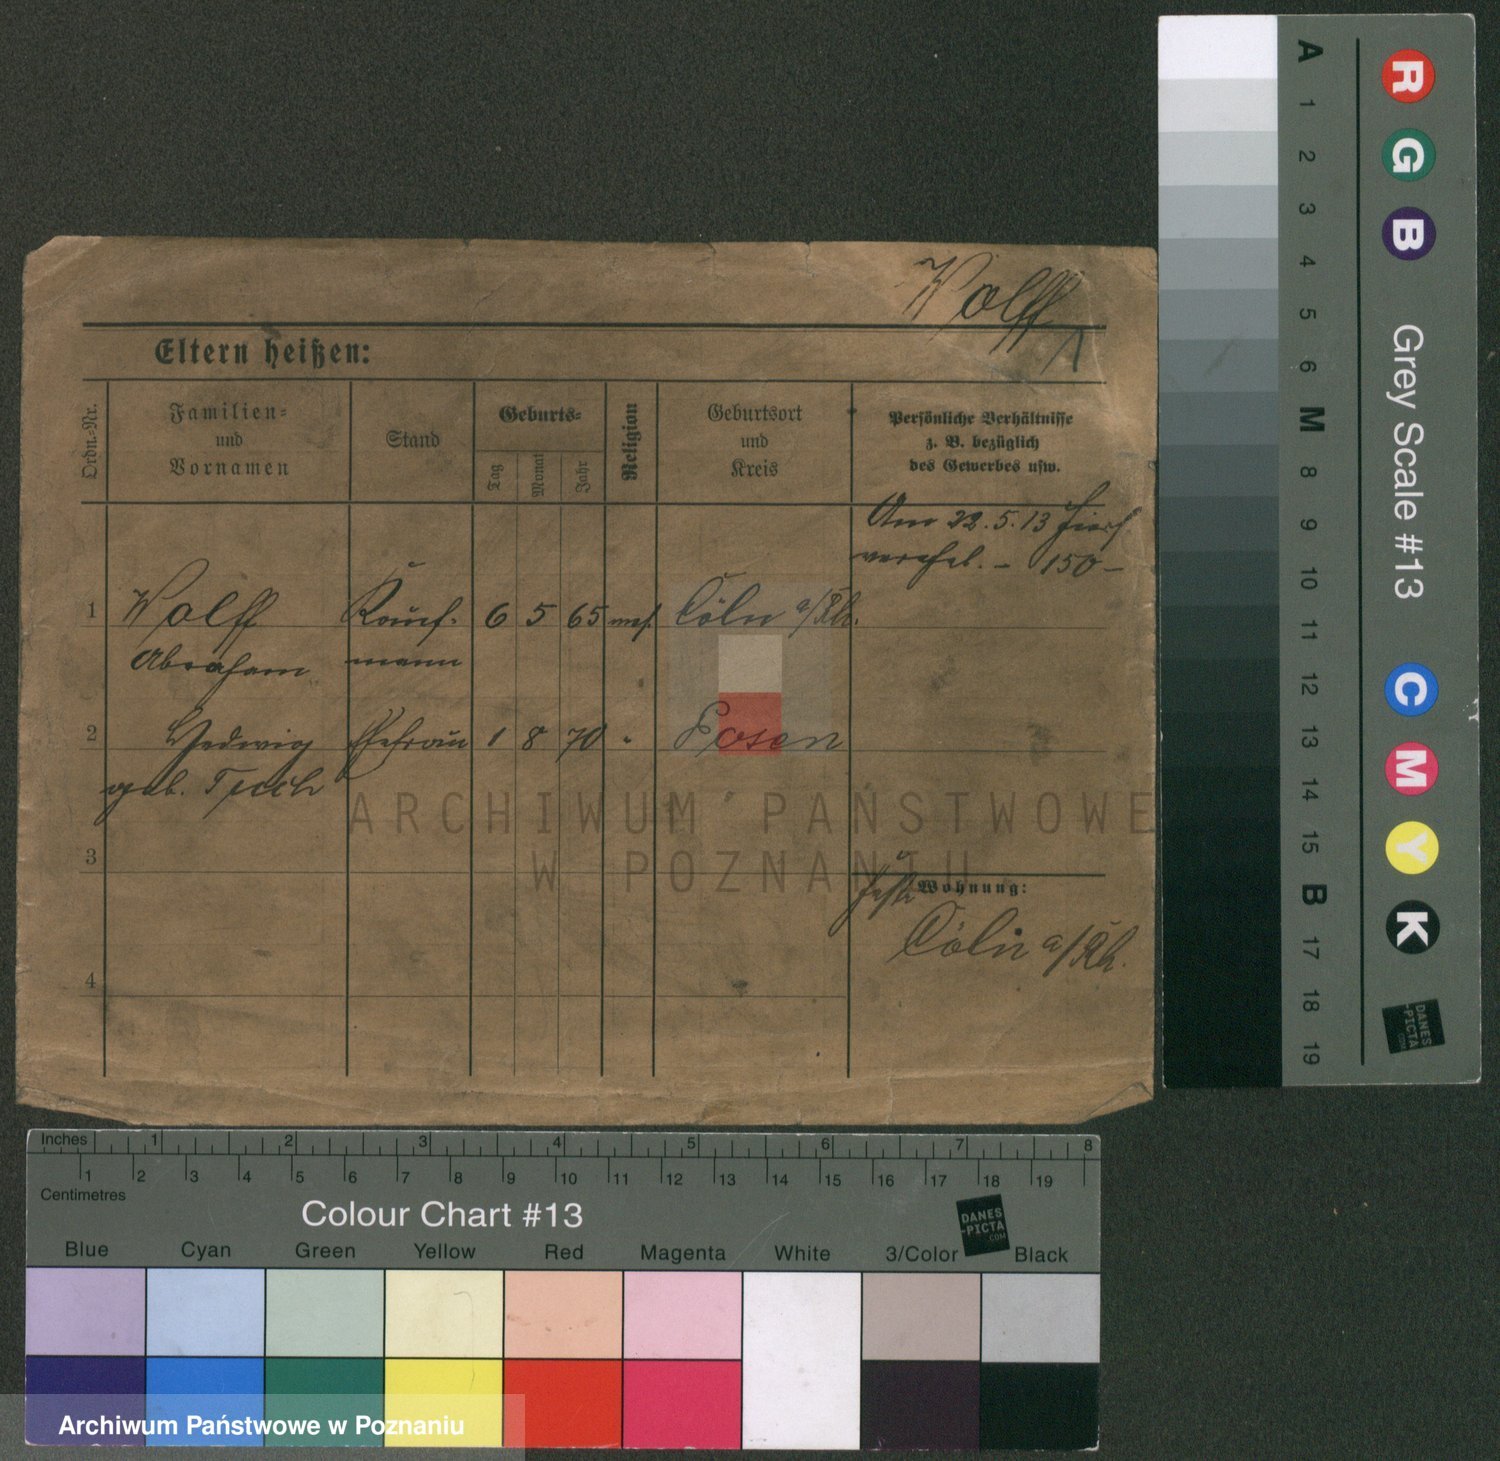 Wolff
Eltern heißen:
Ordn.-Nr.
Familien-
und
Vornamen
Stand
Geburts-
Tag
Monat
Jahr
Religion
Geburtsort
und
Kreis
Persönliche Verhältnisse
z. B. bezüglich
des Gewerbes usw.
Am 22.5.13 hier
verehel. - 150 -
1 Wolff Kauf- 6 5 65 mos. Cöln a/Rh.
Abraham mann
2 Hedwig Ehefrau 1 8 70 " Posen
geb.
3
4
Wohnung:
Cöln a/Rh.
ARCHIWUM PAŃSTWOWE
W POZNANIU
Inches 1 2 3 4 5 6 7 8
1 2 3 4 5 6 7 8 9 10 11 12 13 14 15 16 17 18 19
Centimetres
Colour Chart #13
DANES
-PICTA
.COM
Blue Cyan Green Yellow Red Magenta White 3/Color Black
Archiwum Państwowe w Poznaniu
R G B
Grey Scale #13
C M Y K
DANES
-PICTA
.COM
A 1 2 3 4 5 6 M 8 9 10 11 12 13 14 15 B 17 18 19